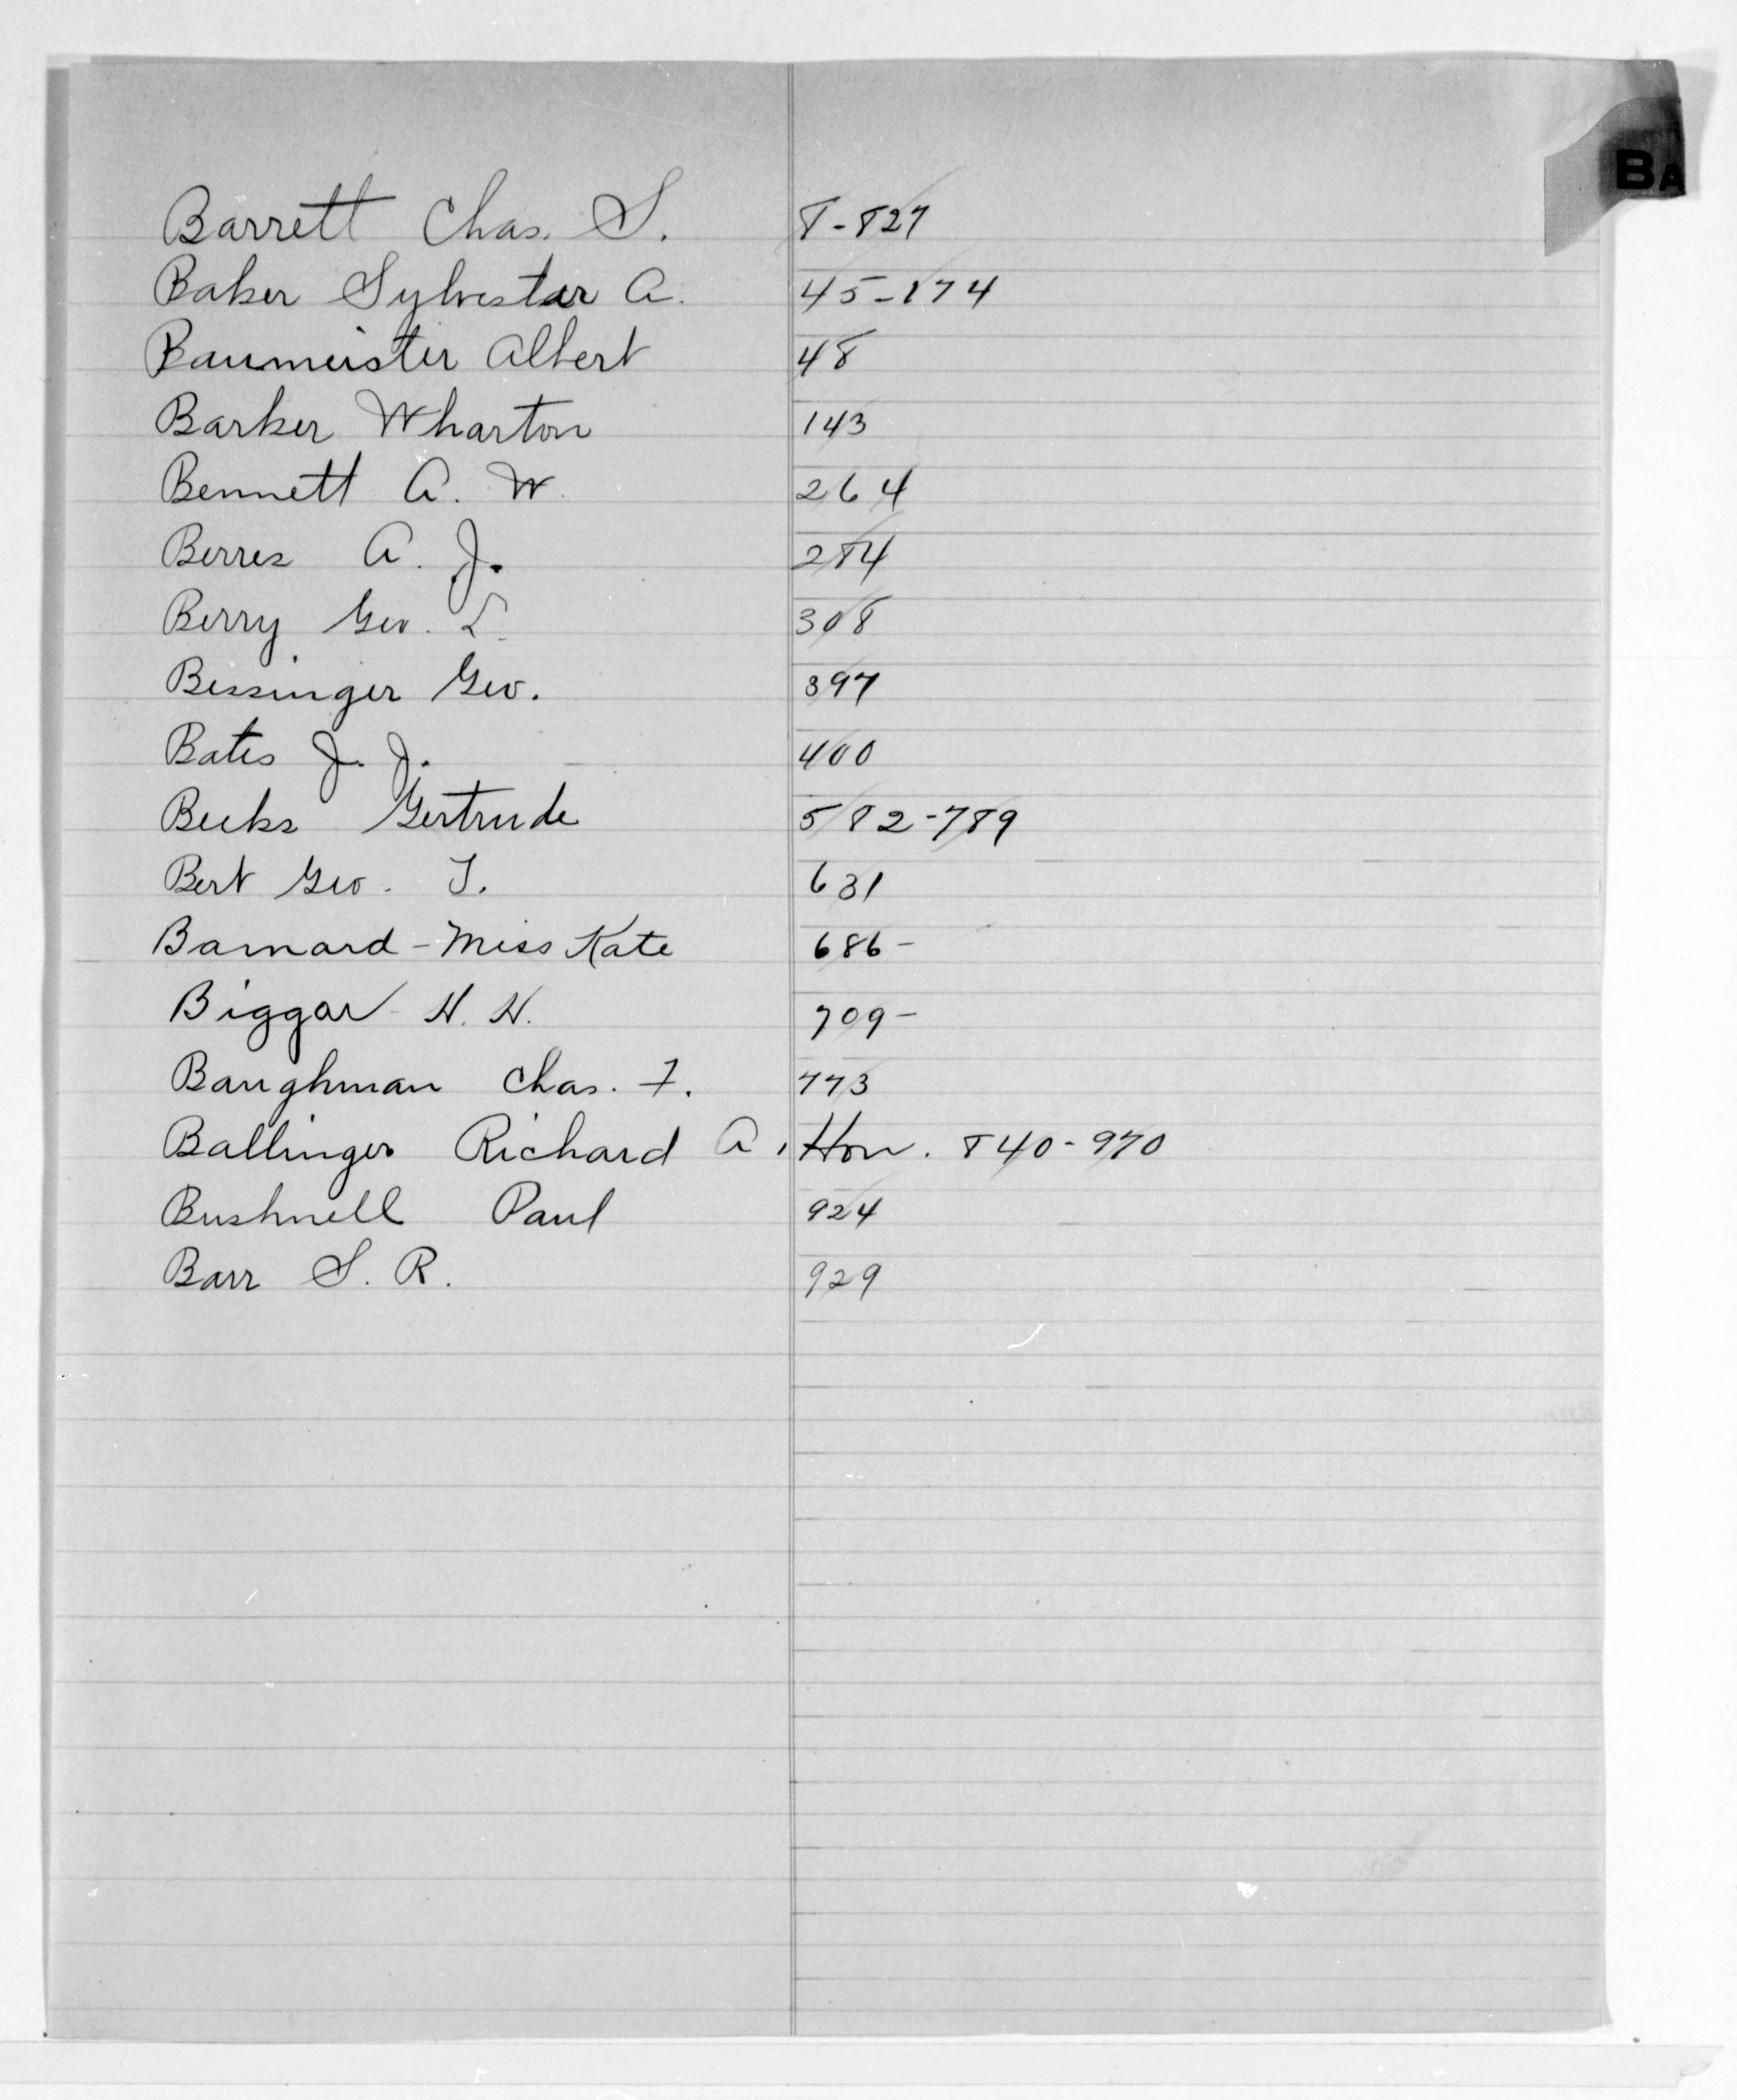 BA
Barrett Chas. S. 8-827
Baker Sylvester A. 45-174
Baumeister Albert 48
Barker Wharton 143
Bennett A. W. 264
Berres A. J. 284
Berry Geo. L. 308
Bessinger Geo. 397
Bates J. J. 400
Beeks Gertrude 582-789
Bert Geo. T. 631
Barnard - Miss Kate 686-
Biggar H. H. 709-
Baughman Chas. F. 773
Ballinger Richard A, Hon. 840-970
Bushnell Paul 924
Barr S. R. 929